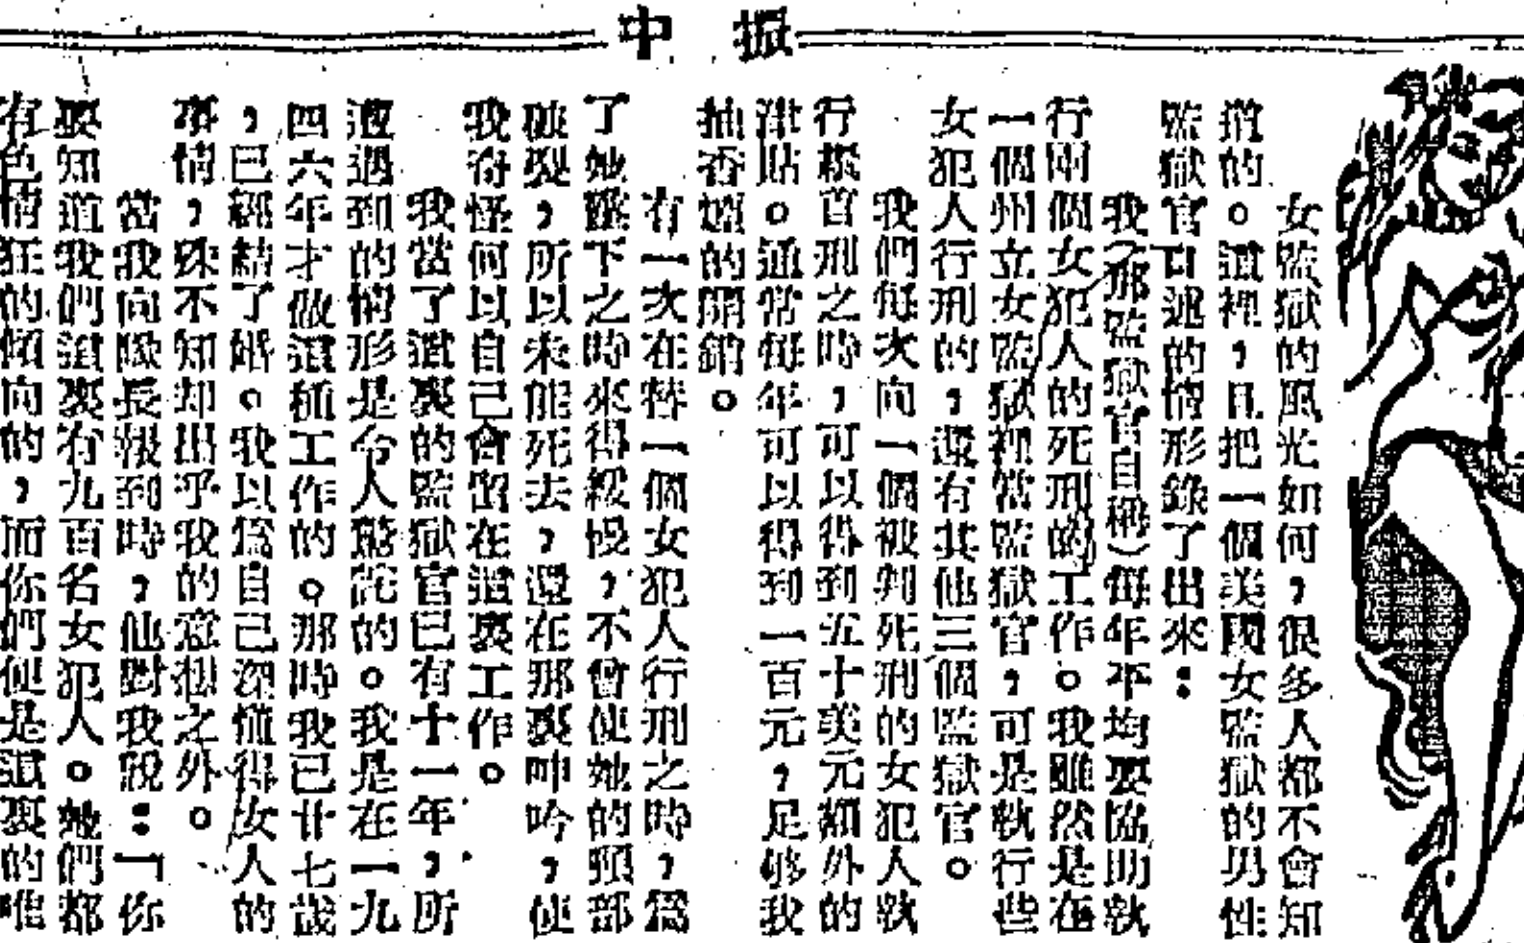 振中
女監獄的風光如何，很多人都不會知
道的。這裡，且把一個美國女監獄的男性
監獄官自述的情形錄了出來：
我（那監獄官自稱）每年平均要協助執
行兩個女犯人的死刑的工作。我雖然是在
一個州立女監獄裡當監獄官，可是執行些
女犯人行刑的，還有其他三個監獄官。
我們每次向一個被判死刑的女犯人執
行梟首刑之時，可以得到五十美元額外的
津貼。通常每年可以得到一百元，足够我
抽香烟的開銷。
有一次在替一個女犯人行刑之時，爲
了她蹤下之時來得緩慢，不曾使她的頸部
破裂，所以未能死去，還在那裏呻吟，使
我奇怪何以自己會留在這裏工作。
我當了這裏的監獄官已有十一年，所
遭遇到的情形是令人驚詫的。我是在一九
四六年才做這種工作的。那時我已廿七歲
，已經結了婚。我以爲自己深懂得女人的
事情，殊不知却出乎我的意想之外。
當我向隊長報到時，他對我說：「你
要知道我們這裏有九百名女犯人。她們都
有色情狂的傾向的，而你們便是這裏的唯